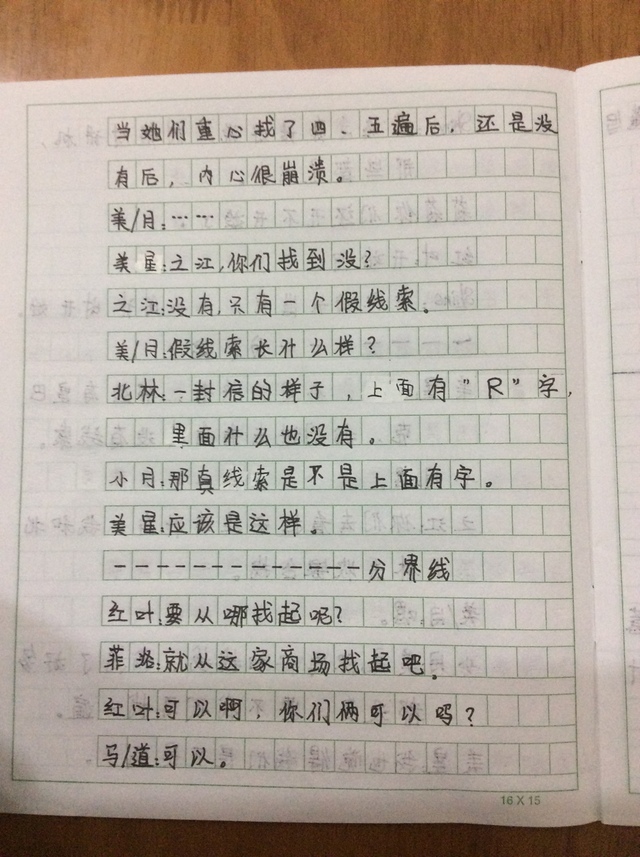 当她们重心找了四、五遍后，还是没
有后，内心很崩溃。
美/月：……
美星：之江，你们找到没？
之江：没有，只有一个假线索。
美/月：假线索长什么样？
北林：一封信的样子，上面有"R"字，
里面什么也没有。
小月：那真线索是不是上面有字。
美星：应该是这样。
-------------分界线
红叶：要从哪找起呢？
菲洛：就从这家商场找起吧。
红叶：可以啊，你们俩可以吗？
马/道：可以。
16X15